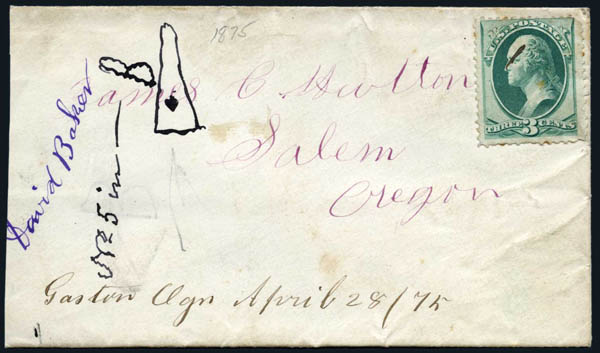 1875
U.S. POSTAGE
THREE 3 CENTS
James C Hutton
Salem
Oregon
David Baker
5 in
Gaston Ogn April 28/75